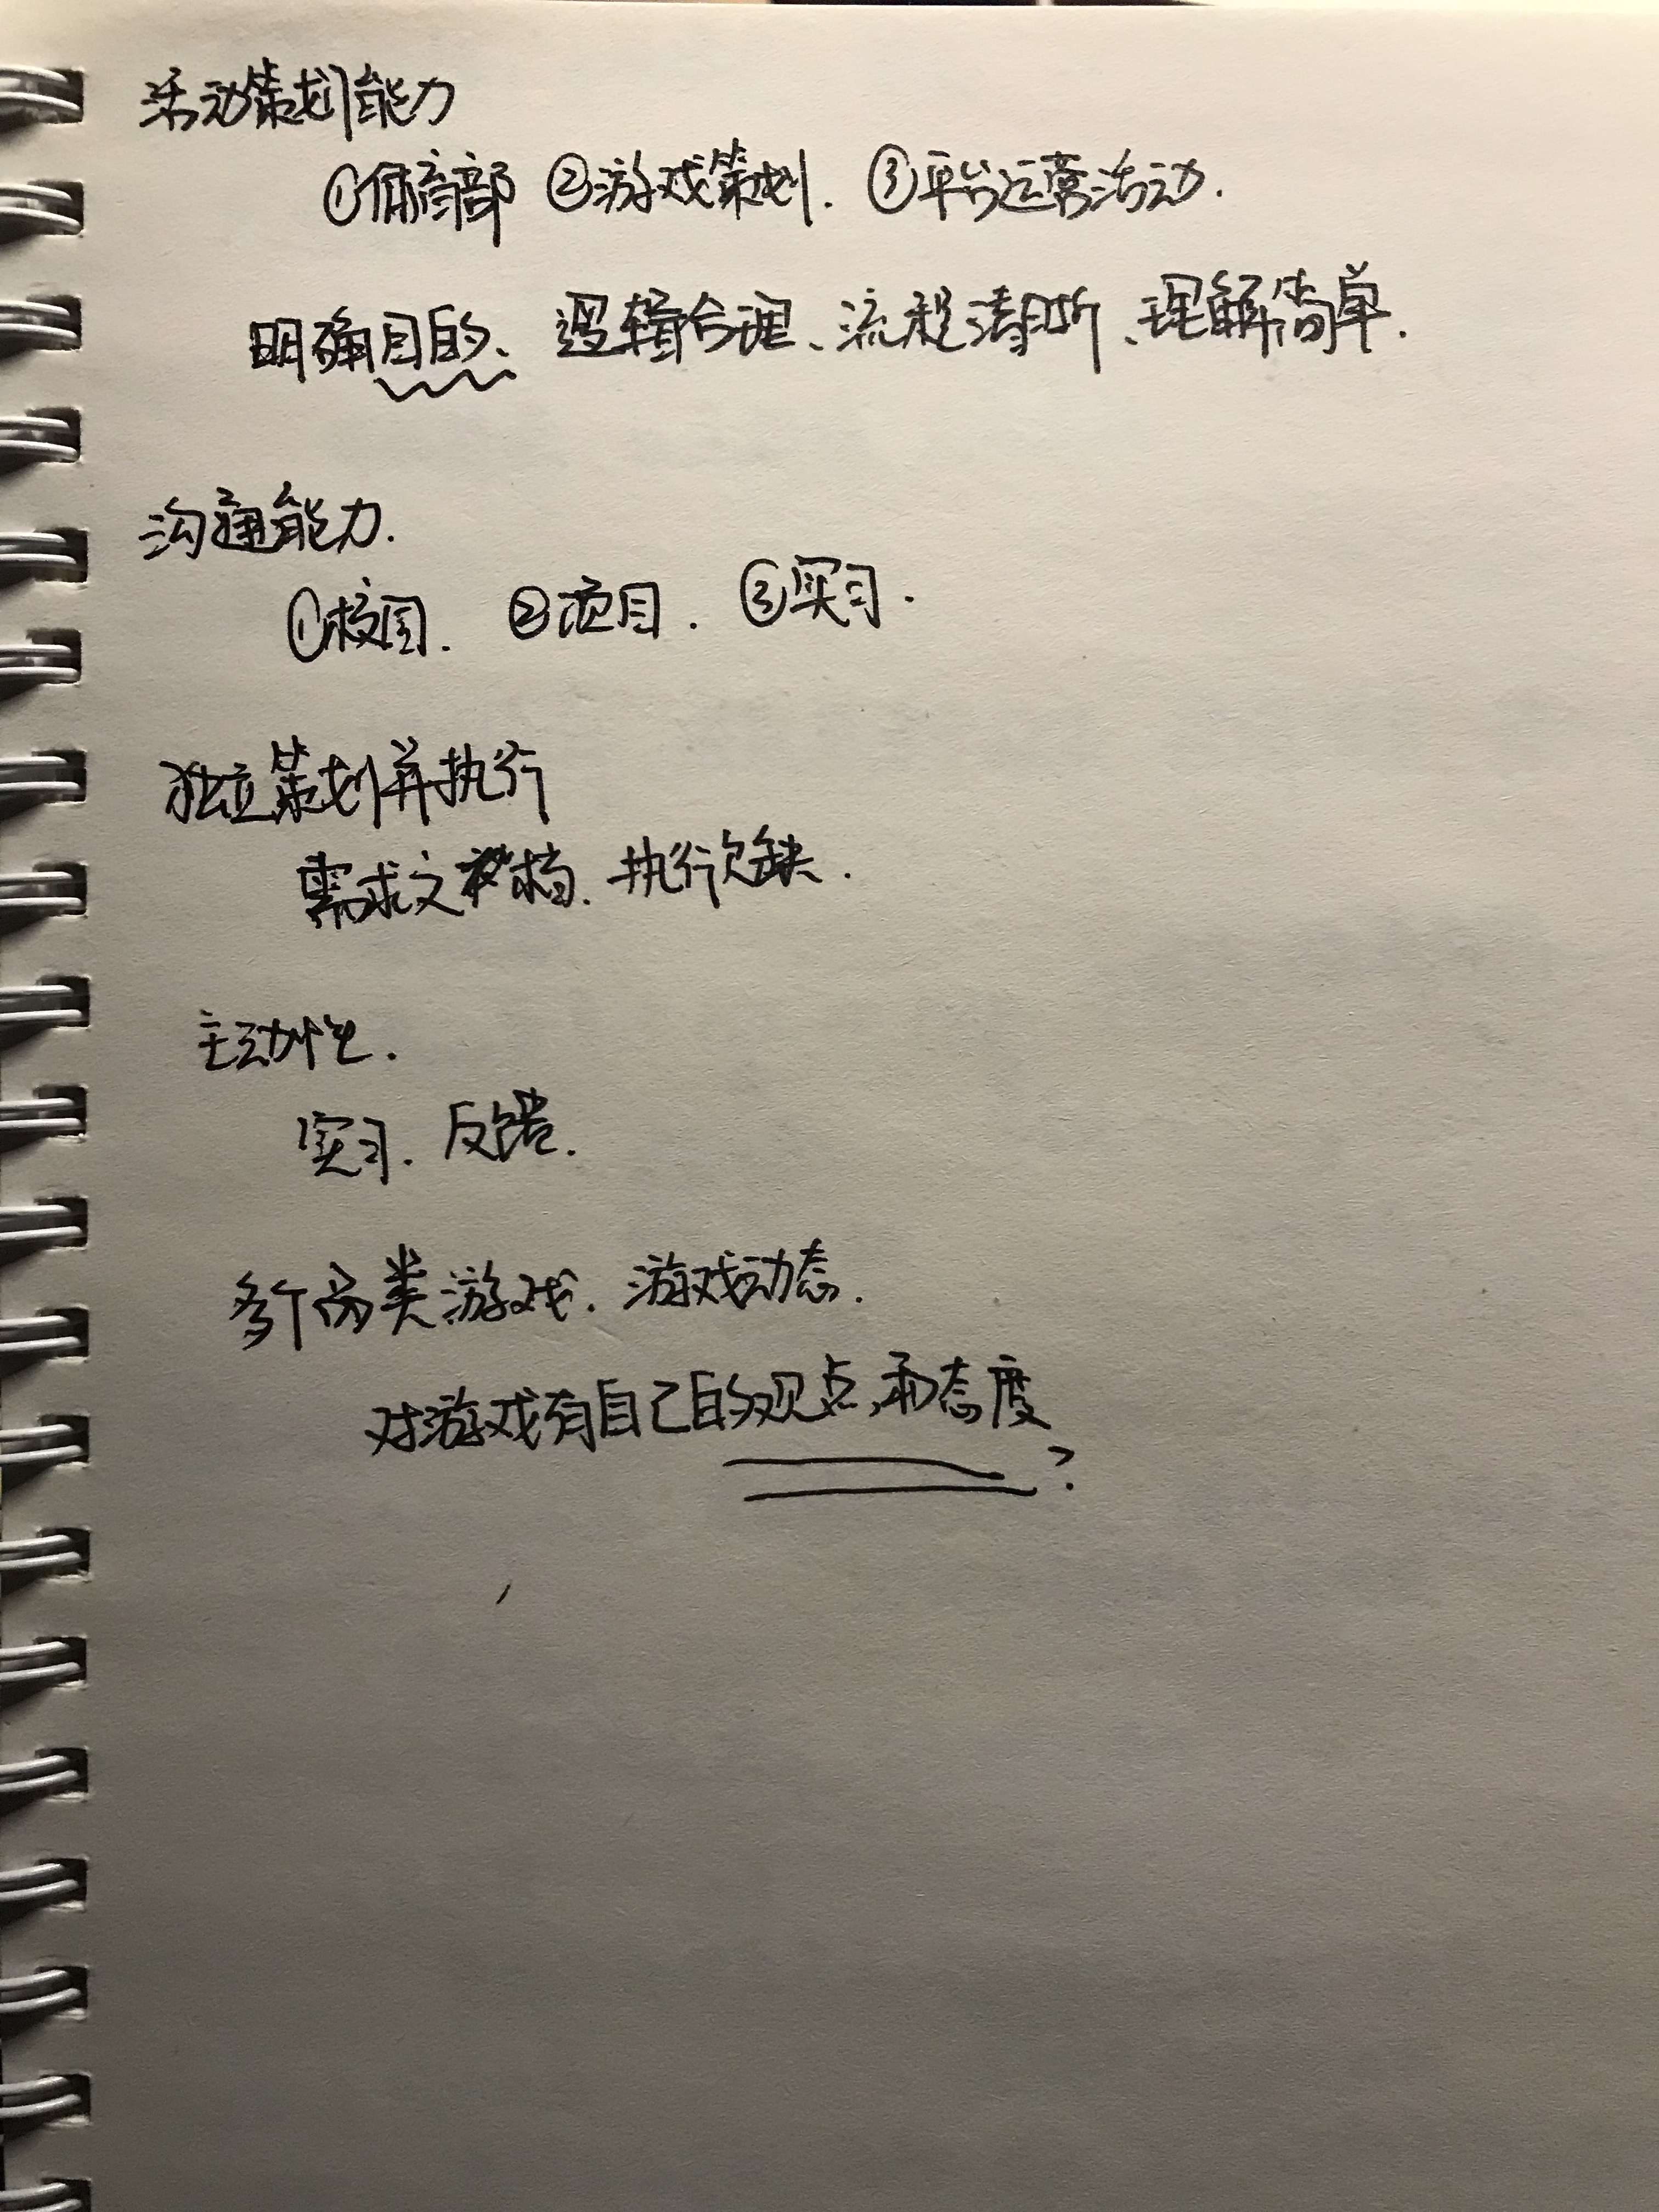 活动策划能力
①体育部 ②游戏策划. ③平台运营活动.
明确目的、逻辑合理、流程清晰、理解简单.
沟通能力.
①校园. ②项目. ③实习.
独立策划并执行
需求文档. 执行欠缺.
主动性.
实习. 反馈.
多个品类游戏. 游戏动态.
对游戏有自己的观点,和态度
?